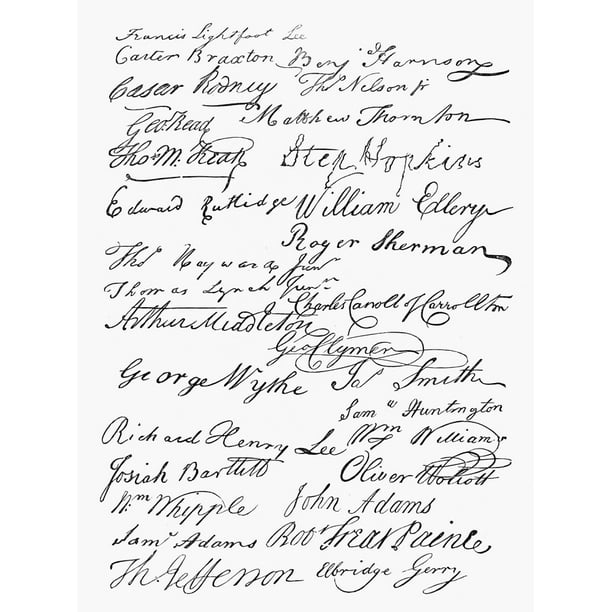 Francis Lightfoot Lee
Carter Braxton Benj Harrison
Cæsar Rodney Thos Nelson jr
Geo. Read Matthew Thornton
Thos. M. Kean Step. Hopkins
Edward Rutledge William Ellery
Roger Sherman
Thos Hayward Junr
Thomas Lynch Junr Charles Carroll of Carrollton
Arthur Middleton
Geo Clymer
George Wythe Jas Smith
Samel Huntington
Richard Henry Lee Wm Williams
Josiah Bartlett Oliver Wolcott
Wm Whipple John Adams
Saml Adams Robt Treat Paine
Th. Jefferson Elbridge Gerry